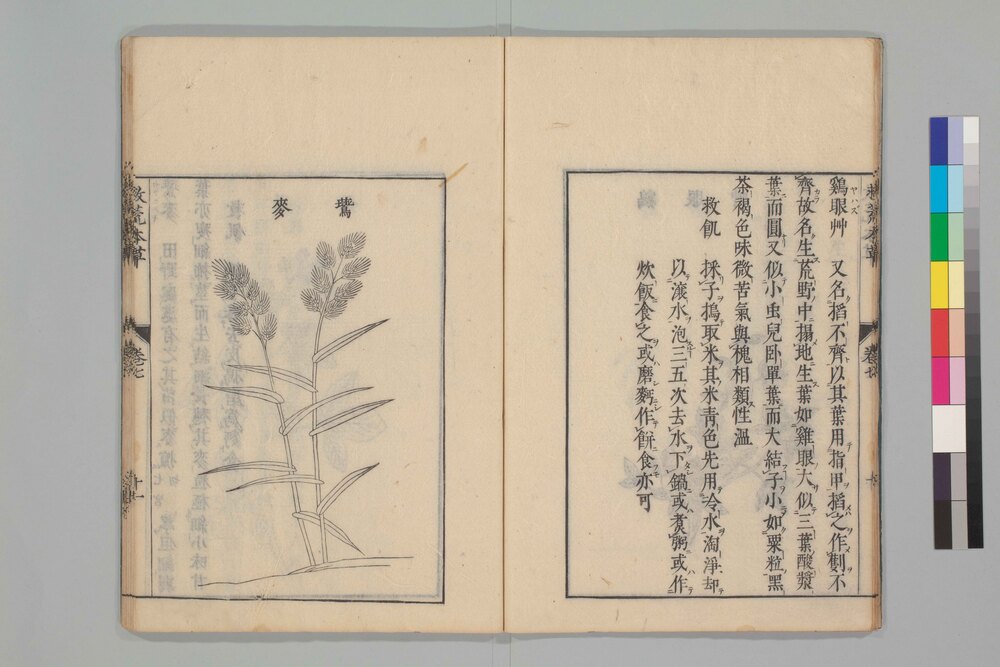 救荒本草
卷七
十
鷄眼艸　又名搯不齊以其葉用指甲搯之作劐不
齊故名生荒野中搨地生葉如雞眼大似三葉酸漿
葉而圓又似小虫兒卧單葉而大結子小如粟粒黑
茶褐色味微苦氣與槐相類性溫
救飢　採子搗取米其米青色先用冷水淘淨却
以滾水泡三五次去水下鍋或煮粥或作
炊飯食之或磨麪作餠食亦可
鷰
麥
救荒本草
卷七
十一